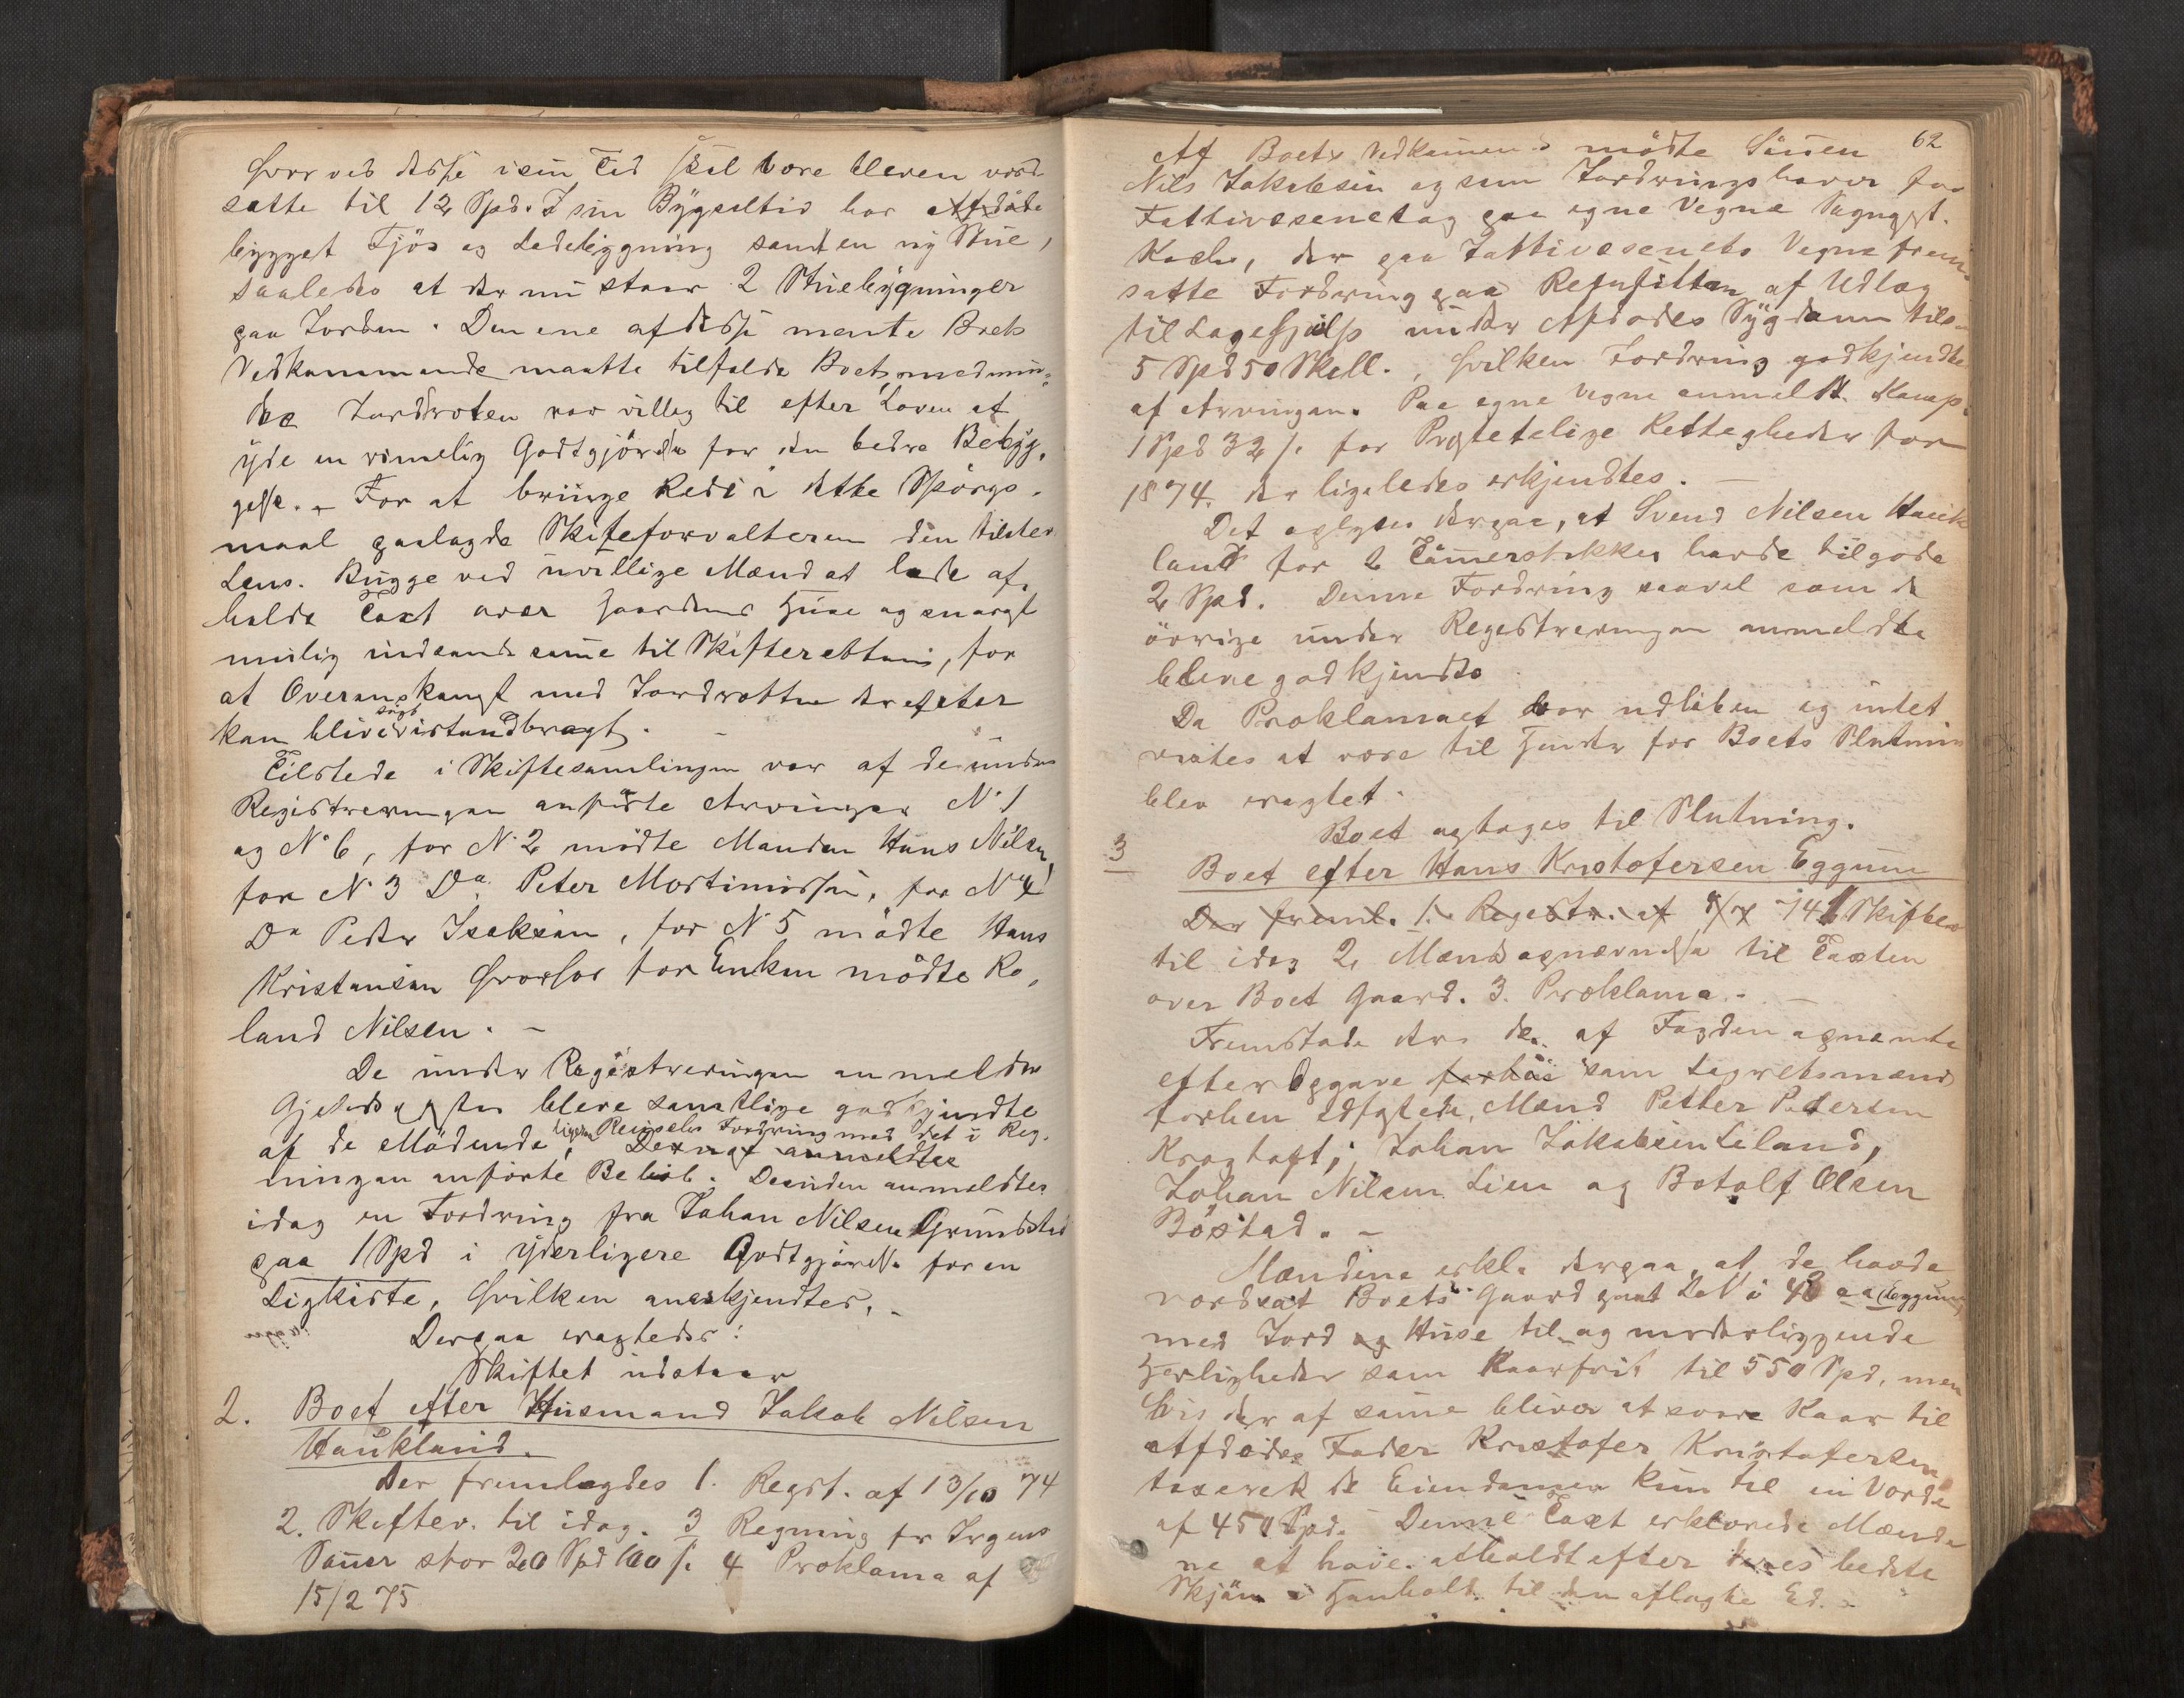 hvorved disse i sin Tid skal være bleven værd-
satte til 12 Spd. I sin Bygseltid har Afdøde
bygget Fjøs og Ladebygning samt en ny Stue,
saaledes at der nu staar 2 Stuebygninger
paa Jorden. Den ene af disse mente Boets
Vedkommende maatte tilfalde Boet, medmin-
dre Jorddrotten var villig til efter Loven at
yde en rimelig Godtgjørelse for den bedre Bebyg-
gelse. - For at bringe Rede i dette Spørgs-
maal paalagde Skifteforvalteren den tilstede
Lens. Rugge ved uvillige Mænd at lade af-
holde Taxt over Jordens Huse og snarest
mulig indsende samme til Skifteretten, for
at Overenskomst med Jorddrotten derefter
kan blive søgt istandbragt. -
Tilstede i Skiftesamlingen var af de under
Registreringen anførte Arvinger N 1
og N 6, for N 2 mødte Manden Hans Nilsen,
for N 3 Do Peter Mortinussen, for N 4
Do Peder Isaksen, for N 5 mødte Hans
Kristansen hvorhos for Enken mødte Ro-
land Nilsen. -
De under Registreringen anmeldte
Gjeldsposter bleve samtlige godkjendte
af de Mødende, ligesaa Fordring med det i Reg.
Derpaa anmeldtes
ningen anførte Beløb. Desuden anmeldtes
idag en Fordring fra Johan Nilsen Grundstad
paa 1 Spd i yderligere Godtgjørelse for en
Ligkiste, hvilken anerkjendtes. -
Derpaa eragtedes:
Skiftet udstaar
2. Boet efter Husmand Jakob Nilsen
Haukland.
Der fremlagdes 1. Regst. af 13/10 74
2. Skiftev. til idag. 3 Regning fr Irgens
stor 20 Spd 100 s. 4 Proklama af
15/2 75
62
Af Boets Vedkommende mødte Sønnen
Nils Jakobsen og som Fordringshaver for
Fattivæsenet og paa egne Vegne Sogngst.
Koch, der paa Fattivæsenets Vegne frem-
satte Fordring paa Refusition af Udlæg
til Lægehjælp under Afdødes Sygdom tils.
5 Spd 50 Skill., hvilken Fordring godkjendtes
af Arvingen. Paa egne Vegne anmeldt Komp.
1 Spd 32 s. for Prestelige Rettigheder for
1874. der ligeledes erkjendtes. -
Det oplystes derpaa, at Svend Nilsen Hauk-
land for 2 Tømmerstokker havde tilgode
2 Spd. Denne Fordring saavel som de
øvrige under Registreringen anmeldte
bleve godkjendte
Da Proklamaet var udløben og intet
vistes at være til Hinder for Boets Slutning
blev eragtet.
Boet optages til Slutning.
3 Boet efter Hans Kristofersen Eggum
Der freml. 1. Registr. af 8/7 74 1 Skiftev
til idag 2, Mændsopnævnelse til Taxten
over Boets Gaard. 3. Proklama. -
Fremstode der de af Fogden opnævnte
efter Opgave forhen som Lagrettesmænd
forhen edfæstede Mænd Petter Pedersen
Kragtoft, Johan Jakobsen Liland,
Johan Nilsen Lien og Botolf Olsen
Bøstad. -
Mændene erkl. derpaa, at de havde
værdsat Boets Gaard LN 40 a Eggum
med Jord og Huse til- og underliggende
Herligheder som Kaarfrit til 550 Spd, men
hvis der af samme bliver at svare Kaar til
Afdødes Fader Kristofer Kristofersen
taxerede de Eiendommen kun til en Værdi
af 450 Spd. Denne Taxt erklærede Mænde-
ne at have afholdt efter deres bedste
Skjøn i Henhold til den aflagte Ed. -